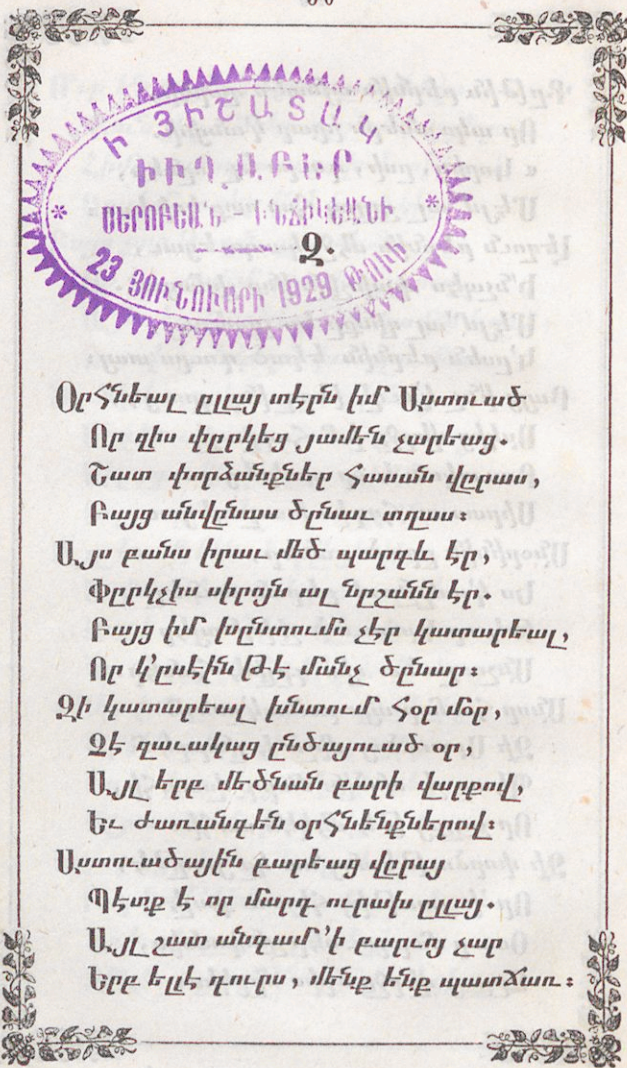 Ի ՅԻՇԱՏԱԿ
ՍԵՐՈԲԵԱՆ
23 ՅՈՒՆՈՒԱՐԻ 1929
Զ.
Օրհնեալ ըլլայ տէրն իմ Աստուած
Որ զիս փըրկեց յամեն չարեաց.
Շատ փորձանքներ հասան վըրաս,
Բայց անվընաս ծընաւ տղաս։
Այս բանս իրաւ մեծ պարգև էր,
Փըրկչիս սիրոյն ալ նըշանն էր.
Բայց իմ խընտումս չէր կատարեալ,
Որ կ՚ըսէին թէ մանչ ծընար։
Չի կատարեալ խնտում հօր մօր,
Չէ զաւակաց ընծայուած օր,
Այլ երբ մեծնան բարի վարքով,
Եւ ժառանգեն օրհնենքներով։
Աստուածային բարեաց վըրայ
Պէտք է որ մարդ ուրախ ըլլայ.
Այլ շատ անգամ ՚ի բարւոյ չար
Երբ ելլէ դուրս, մենք ենք պատճառ։